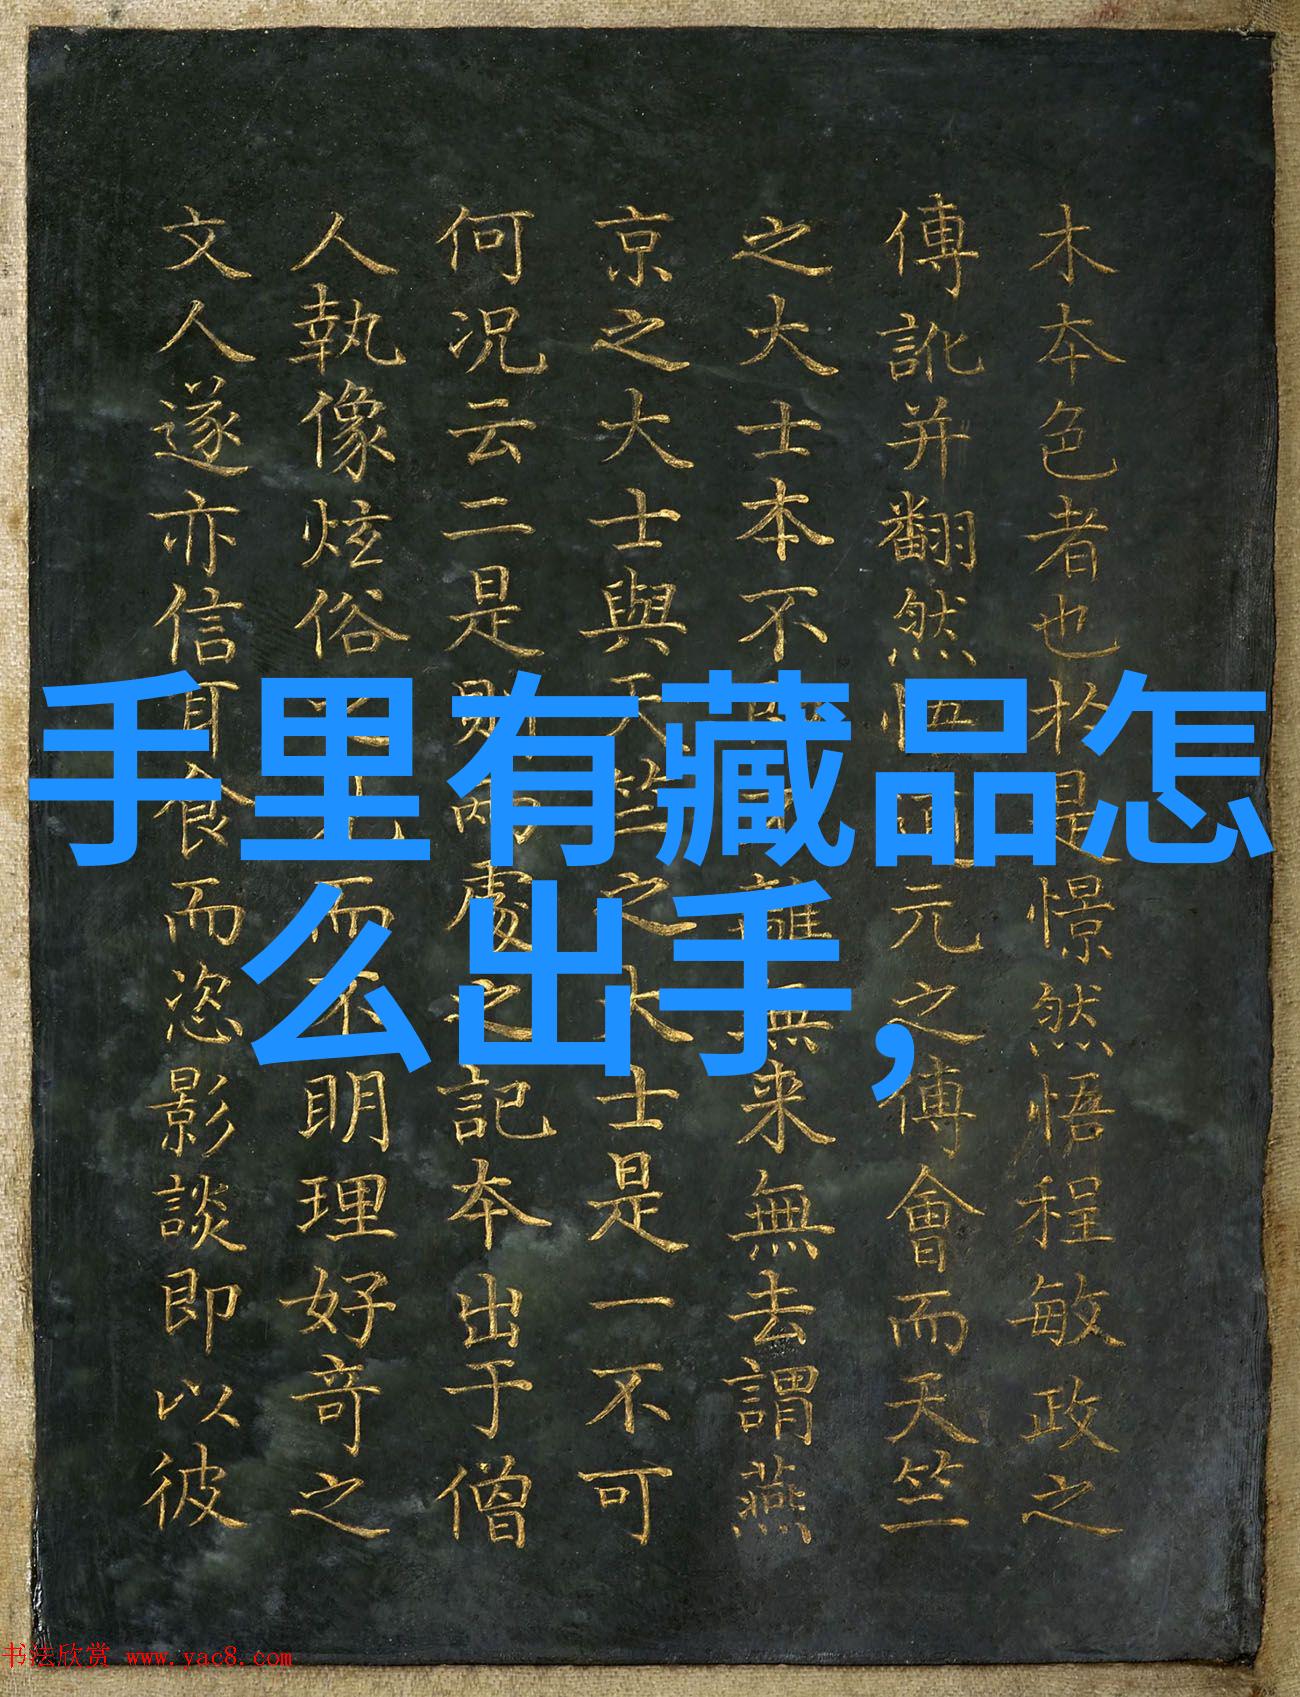 木本色者也於是憬然悟程敏政之
傳訛并翻然悟元之傅會而天竺
之大士本不無来無去謂燕
京之大士與天竺之大士是一不可
何况云二是則兩處之記本出于僧
人執像炫俗而不明理好奇之
文人遂亦信耳食而恣影談即以彼
手里有藏品怎
么出手，
书法欣赏 www.yac8.com